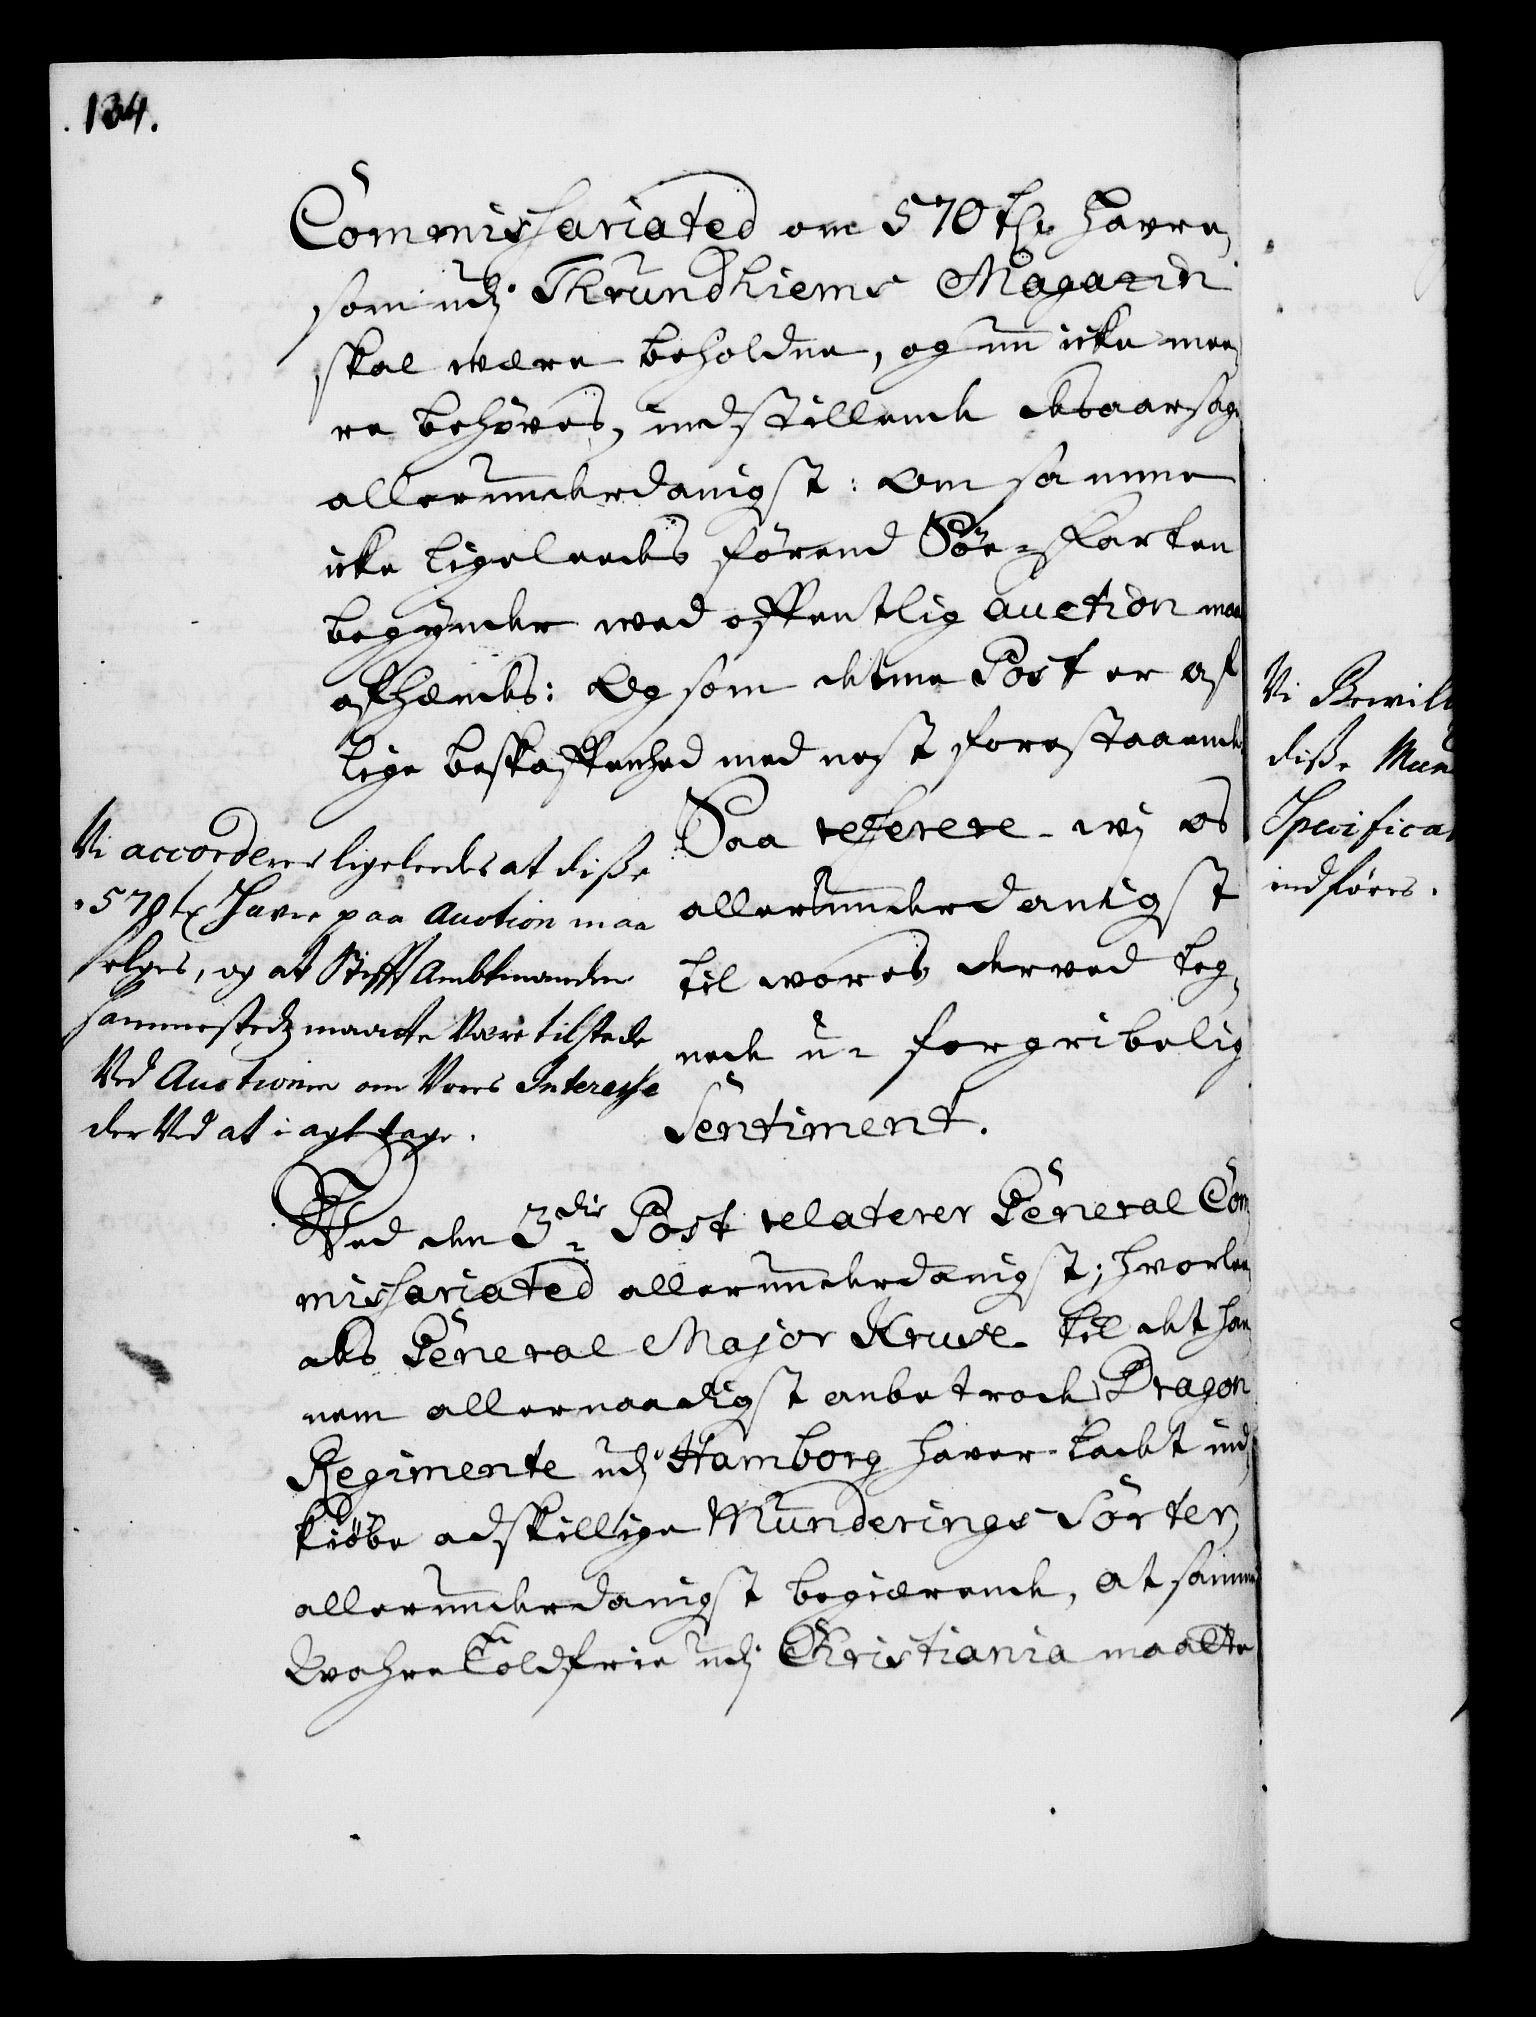 134.
Commissariated om 570 tr. Havre,
som udj Thrundhiems Magazin
skal være beholdne, og nu icke mee,
re behøves, indstillende
allerunderdanigst: Om samme
icke ligeleedes førend Søe-Farten
begynder ved offentlig auction maa
afhændes: Og som denne Post er af
lige beskaffenhed med nest forestaaende
Saa referere wj os
allerunderdanigst
til vores derved teg,
nede u-forgribelig
Sentiment.
Vi accorderer ligeledes at disse
570 tr Havre paa Auction maa
selges, og at Stifft Ambtmanden
sammestedz maatte være tilstede
Ved Auctionen om Vores Interesse
der Ved at i agt tage.
Ved den 3die Post relaterer General Com,
missariated allerunderdanigst; hvorlee,
des General Major Kruse til det han,
nem allernaadigst anbetroede Dragon
Regimente udj Hamborg haver ladt ind,
kiøbe adskillige Munderings Sorter,
allerunderdanigst begiærende, at samme
Wahre Toldfrie udj Christiania maatte
Vi Bewil
disse Mun
Specifica
indføres.